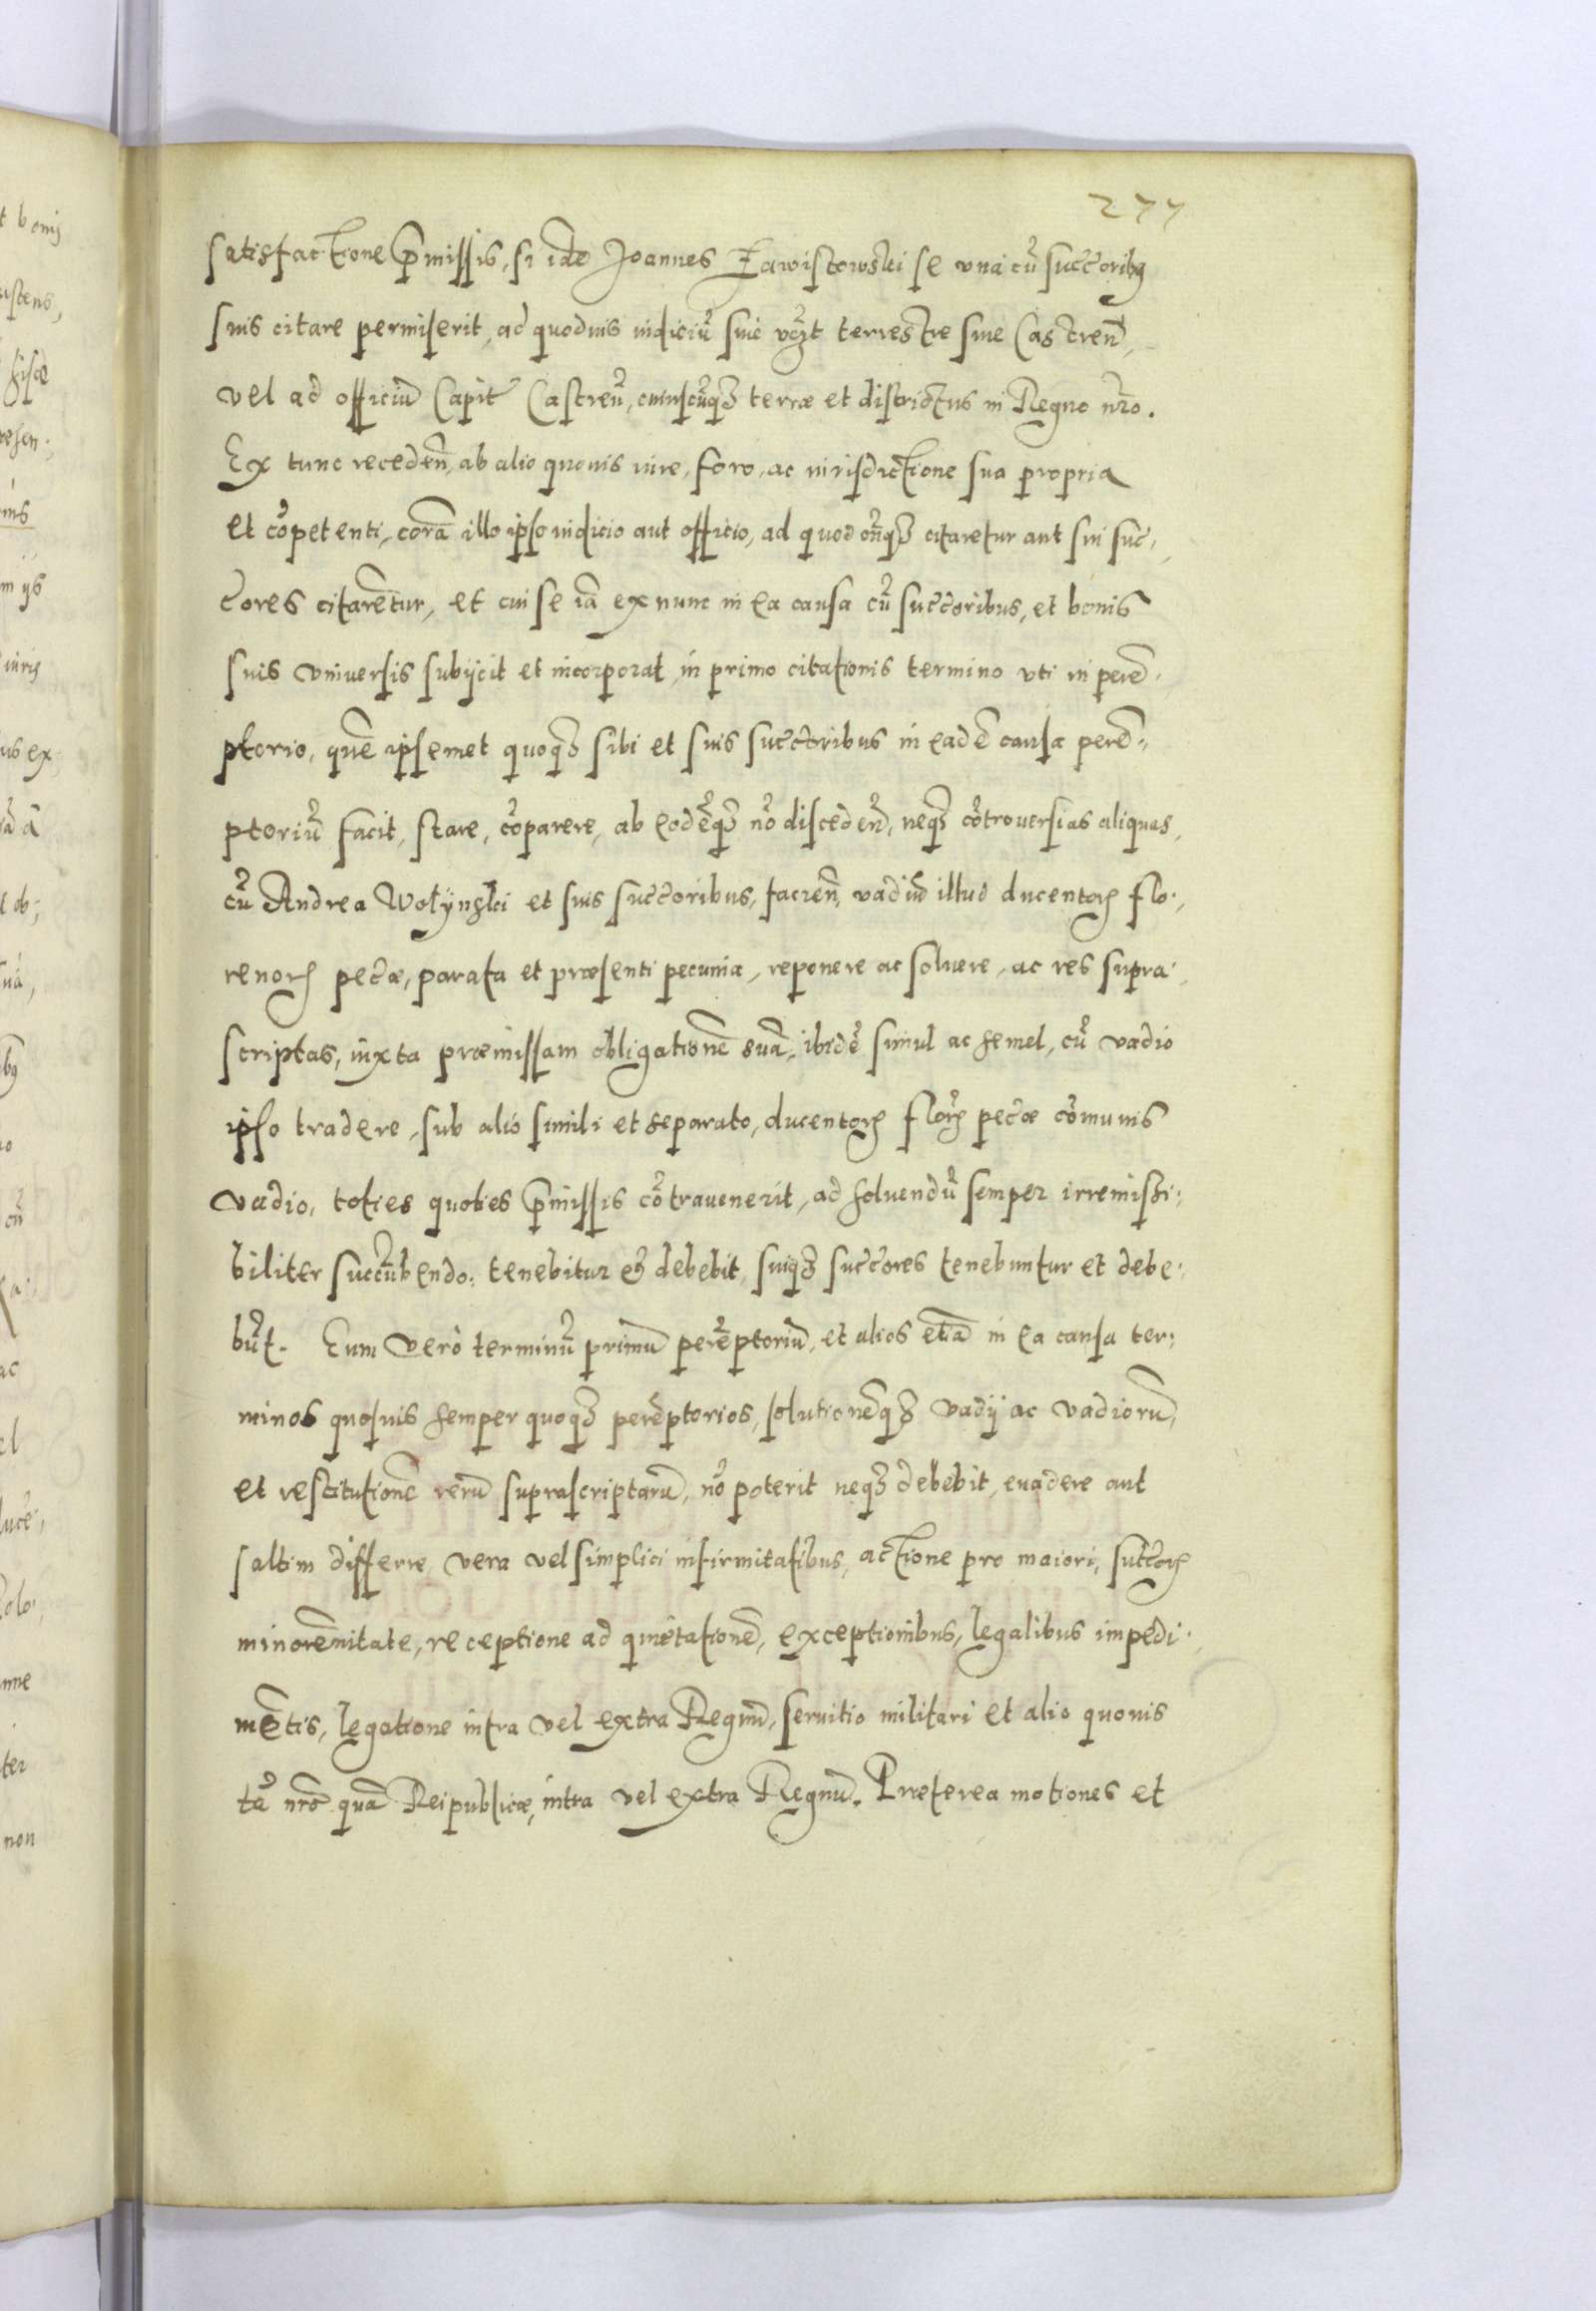 277
satisfactione p̄missis, si idē Joannes Zawistowski se vna cū succōribꝫ
suis citare permiserit, ad quoduis iudiciū siue vc̄zt terrestre siue Castren̄,
vel ad officiū Capit̄ Castren̄, cuiuscūqꝫ terræ et districtus in Regno nr̄o.
Ex tunc receden̄, ab alio quouis iure, foro, ac iurisdictione sua propria
et cōpetenti, corā illo ipso iudicio aut officio, ad quodcūqꝫ citaretur aut sui suc¬
c̄ores citarētur, et cui se iā ex nunc in ea causa cū succ̄oribus, et bonis
suis vniuersis subijcit et incorporat, in primo citationis termino vti in perē¬
ptorio, quē ipsemet quoqꝫ sibi et suis succ̄oribus in eadē causa perē¬
ptoriū facit, stare, cōparere, ab eodēqꝫ nō disceden̄, neqꝫ cōtrouersias aliquas,
cū Andrea Wolÿnski et suis succ̄oribus, facien̄, vadiū illud ducentoꝝ flo¬
renoꝝ pec̄æ, parata et præsenti pecunia, reponere ac soluere, ac res supra¬
scriptas, iuxta præmissam obligationē suā, ibidē simul ac semel, cū vadio
ipso tradere, sub alio simili et separato, ducentoꝝ flor̄ꝝ pec̄æ cōmunis
vadio, toties quoties p̄missis cōtrauenerit, ad soluendū semper irremissi¬
biliter succūbendo: tenebitur eꝫ debebit, suiqꝫ succ̄ores tenebuntur et debe¬
būt. Eum verò terminū primū perēptoriū, et alios etiā in ea causa ter¬
minos quosuis semper quoqꝫ perēptorios, solutionēqꝫ vadij ac vadiorū,
et restitutionē rerū suprascriptarū, nō poterit neqꝫ debebit, euadere aut
saltim differre vera vel simplici infirmitatibus, actione pro maiori, succ̄oꝝ
minorēnitate, receptione ad quietationē, exceptionibus, legalibus impedi¬
mētis, legatione intra vel extra Regnū, seruitio militari et alio quouis
tā nr̄o quā Reipublicæ, intra vel extra Regnū. Præterea motiones et